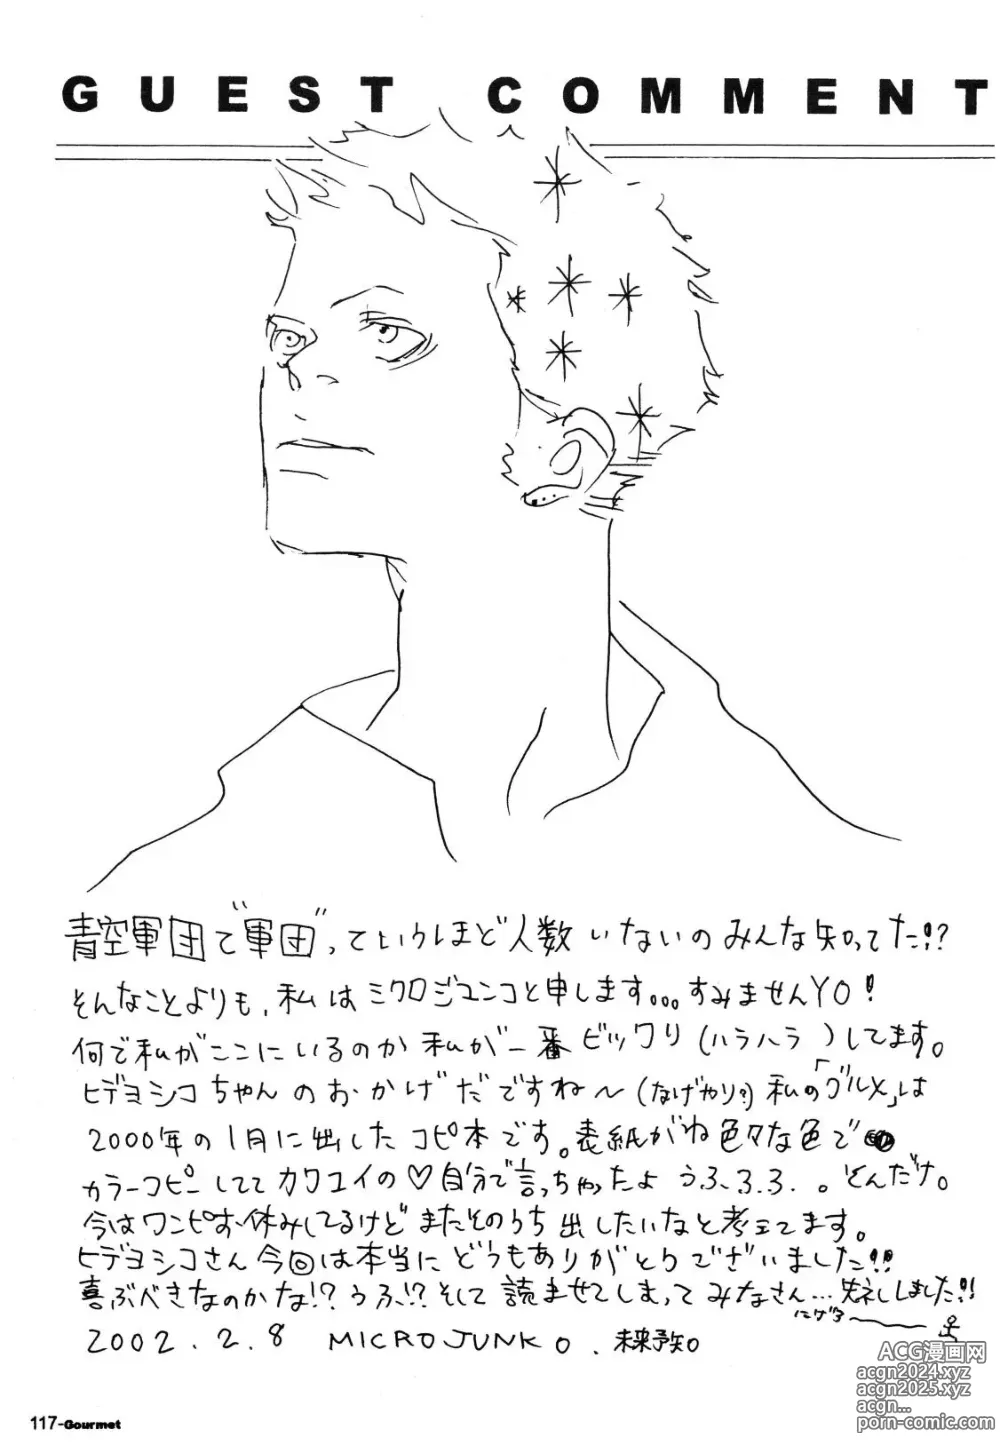 GUEST COMMENT
青空軍団で"軍団"っていうほど人数いないのみんな知ってた!?
そんなことよりも、私はミクロジュンコと申します。。。すみませんYO!
何で私がここにいるのか私が一番ビックリ(ハラハラ)してます。
ヒデヨシコちゃんのおかげだですね〜(なげやり?)私の「グルメ」は
2000年の1月に出したコピ本です。表紙がね色々な色で
カラーコピーしててカワユイの♡自分で言っちゃったよ うふふふ。どんだけ。
今はワンピお休みしてるけどまたそのうち出したいなと考えてます。
ヒデヨシコさん今回は本当にどうもありがとうございました!!
喜ぶべきなのかな!?うふ!?そして読ませてしまってみなさん…失ネしました!!
にげる
2002.2.8 MICROJUNKO.未来予知
117-Gourmet
ACG漫画网
acgn2024.xyz
acgn2025.xyz
acgn...
porn-comic.com